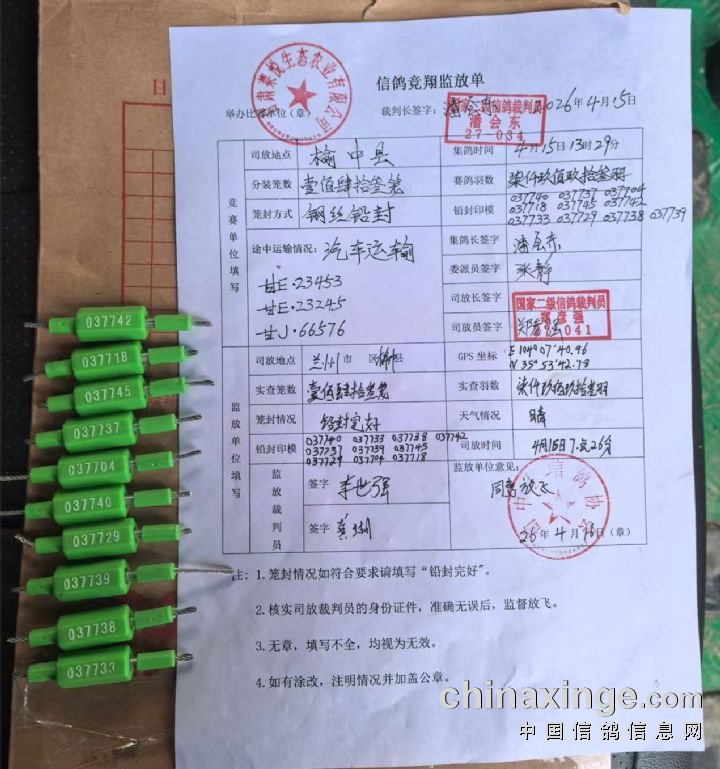 信鸽竞翔监放单
举办比赛单位（章） 裁判长签字：潘会东 2026年4月15日
国家二级信鸽裁判员
潘会东
27-034
竞赛单位填写
司放地点 榆中县 集鸽时间 4月15日13时29分
分装笼数 壹佰肆拾叁笼 赛鸽羽数 柒仟玖佰玖拾叁羽
笼封方式 钢丝铅封 铅封印模 037740 037737 037704
037718 037745 037742
037733 037729 037738 037739
途中运输情况：汽车运输 集鸽长签字 潘会东
甘E·23453 委派员签字 张静
甘E·23245 司放长签字
甘J·66576 司放员签字 郑彦强
国家二级信鸽裁判员
郑彦强
041
监放单位填写
司放地点 兰州市 区 县 GPS 坐标 E 104°07′40.96
N 35°53′42.78
实查笼数 壹佰肆拾叁笼 实查羽数 柒仟玖佰玖拾叁羽
笼封情况 铅封完好 天气情况 晴
铅封印模 037740 037733 037738 037742
037737 037739 037745
037729 037704 037718
司放时间 4月15日7点26分
监放裁判员 签字 李世强 监放单位意见：
同意放飞
签字
26年4月16日（章）
注：1.笼封情况如符合要求请填写“铅封完好”。
2.核实司放裁判员的身份证件，准确无误后，监督放飞。
3.无章，填写不全，均视为无效。
4.如有涂改，注明情况并加盖公章。
037742
037718
037745
037737
037704
037740
037729
037739
037738
037733
chinaxinge.com
中国信鸽信息网